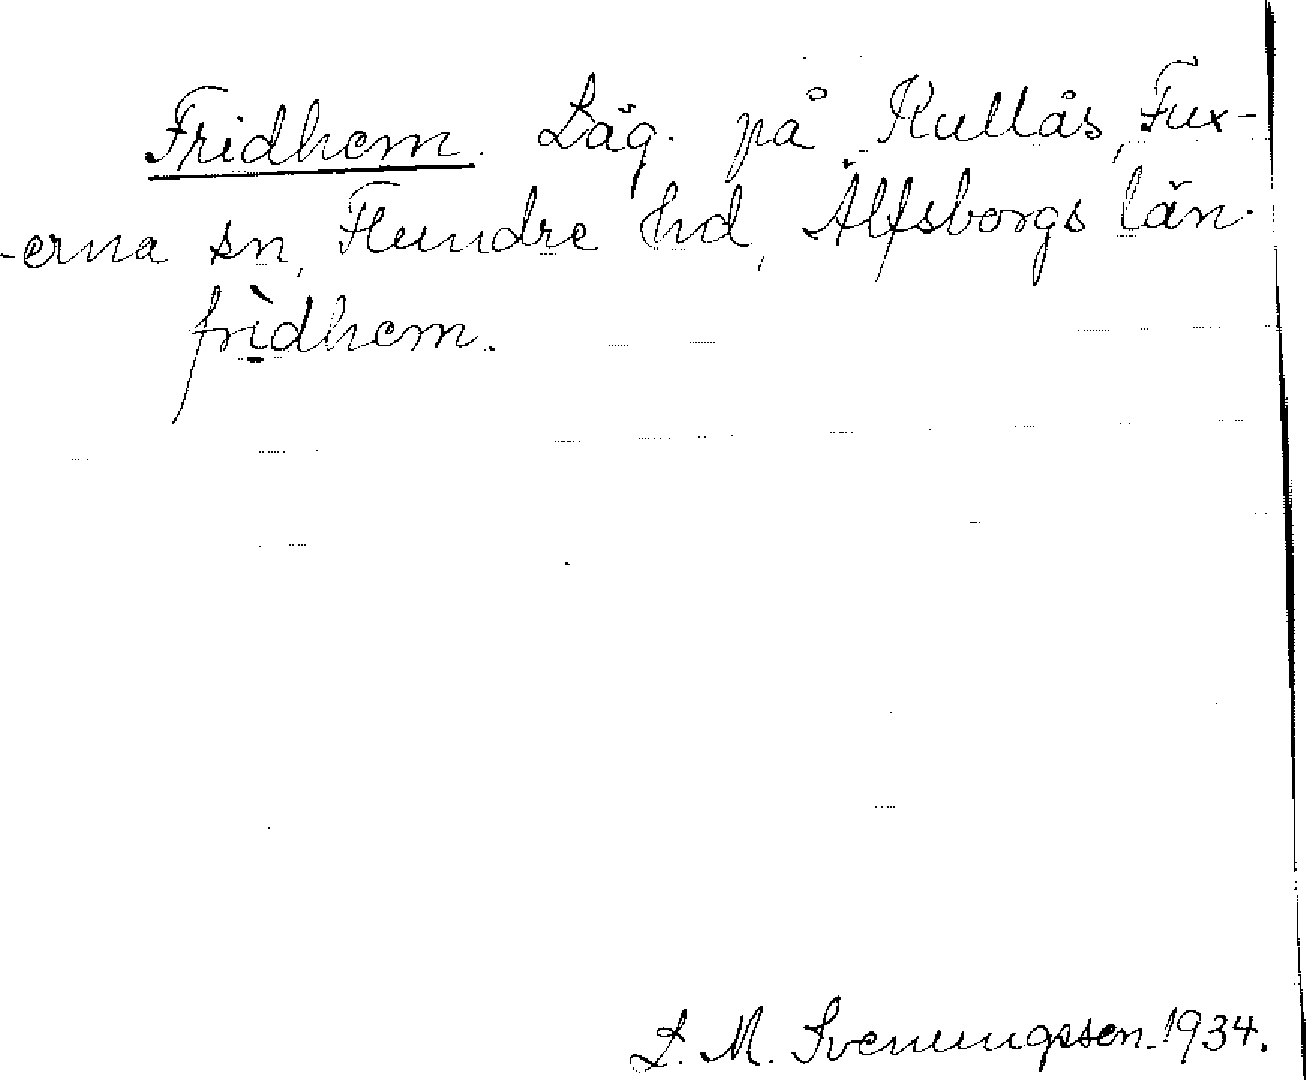 Fridhem. Läg. på Kullås, Fux-
-erna sn, Flundre hd, Älfsborgs län.
frìdhem.
L. M. Svenungsson. 1934.